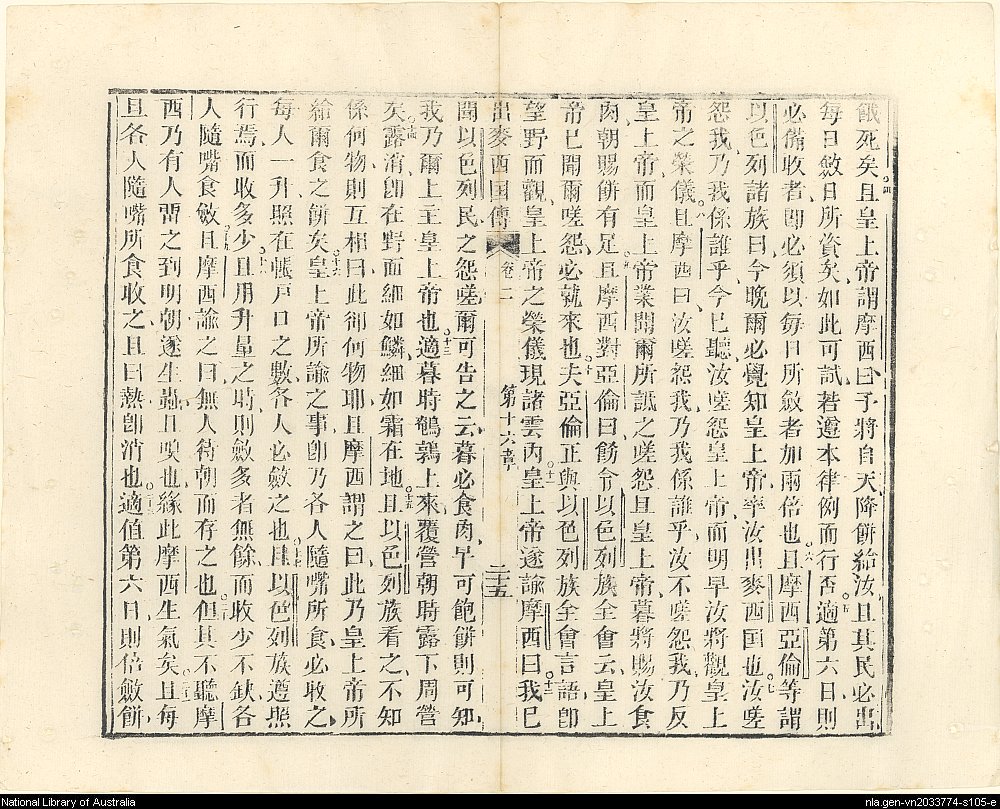 餓死矣且皇上帝謂摩西曰予將自天降餅給汝且其民必出
每日斂日所資矣如此可試若遵本律例而行否適第六日則
必備收者即必須以每日所斂者加兩倍也且摩西亞倫等謂
以色列諸族曰今晚爾必覺知皇上帝率汝出麥西国也汝嗟
怨我乃我係誰乎今已聽汝嗟怨皇上帝而明早汝將觀皇上
帝之榮儀且摩西曰汝嗟怨我乃我係誰乎汝不嗟怨我乃反
皇上帝而皇上帝業聞爾所詆之嗟怨且皇上帝暮將賜汝食
肉朝賜餅有足且摩西對亞倫曰飭令以色列族全會云皇上
帝已聞爾嗟怨必就來也夫亞倫正與以色列族全會言語卽
望野而觀皇上帝之榮儀現諸雲內皇上帝遂諭摩西曰我已
出麥西国傳 卷二 第十六章 二十五
聞以色列民之怨嗟爾可告之云暮必食肉早可飽餅則可知
我乃爾上主皇上帝也適暮時鵪鶉上來覆營朝時露下周營
矣露消卽在野面細如鱗細如霜在地且以色列族看之不知
係何物則互相曰此卻何物耶且摩西謂之曰此乃皇上帝所
給爾食之餅矣皇上帝所諭之事卽乃各人隨嘴所食必收之
每人一升照在帳戶口之數各人必斂之也且以色列族遵照
行焉而收多少且用升量之時則斂多者無餘而收少不缺各
人隨嘴食斂且摩西諭之曰無人待朝而存之也但其不聽摩
西乃有人畱之到明朝遂生蟲且㖞也緣此摩西生氣矣且每
且各人隨嘴所食收之且日熱卽消也適值第六日則倍斂餅
National Library of Australia
nla.gen-vn2033774-s105-e